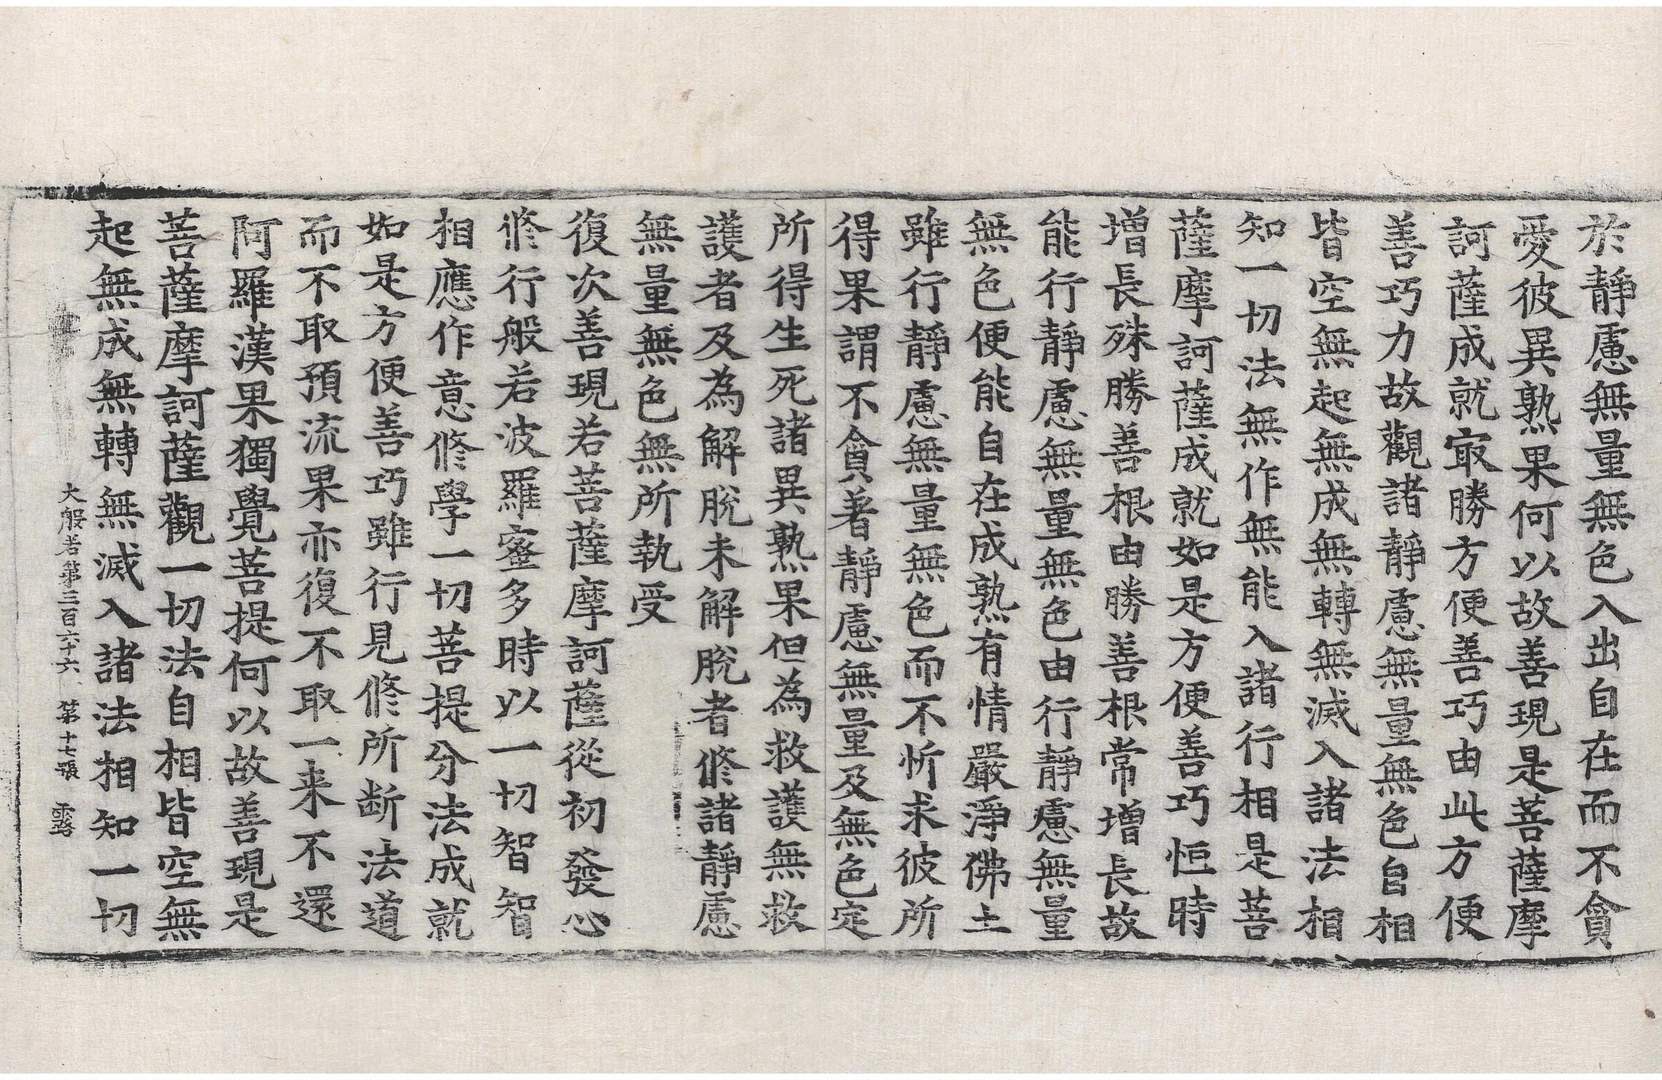 於靜慮無量無色入出自在而不貪
愛彼異熟果何以故善現是菩薩摩
訶薩成就㝡勝方便善巧由此方便
善巧力故觀諸靜慮無量無色自相
皆空無起無成無轉無滅入諸法相
知一切法無作無能入諸行相是菩
薩摩訶薩成就如是方便善巧恒時
增長殊勝善根由勝善根常增長故
能行靜慮無量無色由行靜慮無量
無色便能自在成熟有情嚴淨佛土
雖行靜慮無量無色而不忻求彼所
得果謂不貪著靜慮無量及無色定
所得生死諸異熟果但為救護無救
護者及為解脫未解脫者修諸靜慮
無量無色無所執受
復次善現若菩薩摩訶薩從初發心
修行般若波羅蜜多時以一切智智
相應作意修學一切菩提分法成就
如是方便善巧雖行見修所断法道
而不取預流果亦復不取一来不還
阿羅漢果獨覺菩提何以故善現是
菩薩摩訶薩觀一切法自相皆空無
起無成無轉無滅入諸法相知一切
大般若第三百六十六　第十七張　露